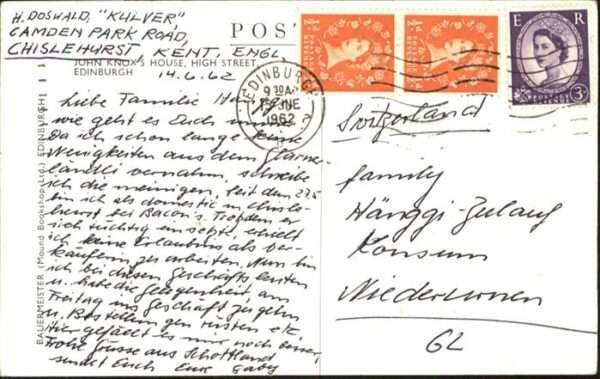 H. DOSWALD, "KULVER"
CAMDEN PARK ROAD,
CHISLEHURST KENT, ENGL.
POS
JOHN KNOX'S HOUSE, HIGH STREET,
EDINBURGH
14.6.62
EDINBURGH
9 30 AM
JNE
1962
E R
3D
BAUERMEISTER (Mound Bookshop Ltd.) EDINBURGH
Liebe Familie
wie geht es Euch immer?
Da ich schon lange keine
Neuigkeiten aus dem Glarner-
ländli vernahm, schreibe
ich die meinigen, seit dem 27.5
bin ich als domestic in Chisle-
hurst bei Bacon's. Trotzdem er
sich tüchtig einsetzte, erhielt
ich keine Erlaubnis als Ver-
käuferin zu arbeiten. Nun bin
ich bei diesen Geschäftsleuten
u. habe die Gelegenheit am
Freitag ins Geschäft zu gehn
u. Bestellungen rüsten etc.
Hier gefällt es mir noch besser,
Frohe Grüsse aus Schottland
sendet Euch Eure Gaby
Switzerland
family
Hänggi-Zulauf
Konsum
Niederurnen
GL